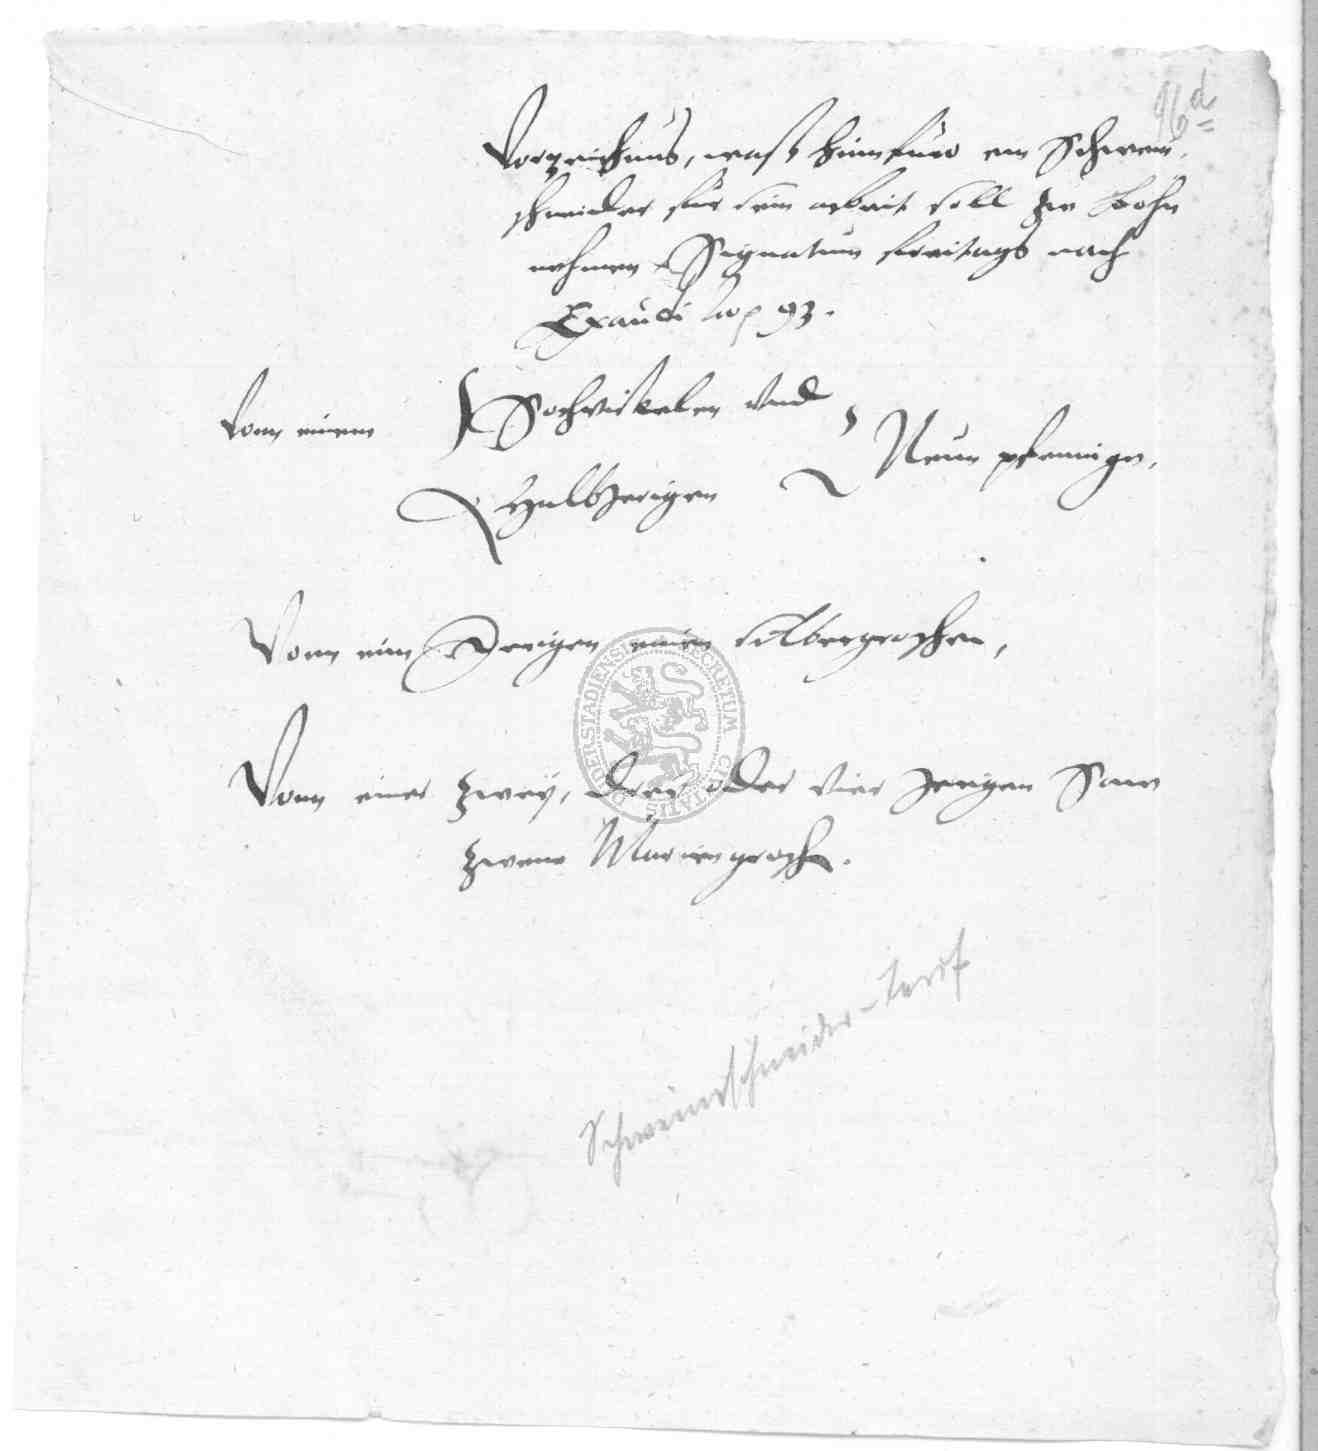 96d
Vorzeichnus, waß hinnfuro ein Schwein
schneider für sein arbeit soll zu Lohn
nehmen Signatum freitags nach
Exaudi Anno 93.
Vonn einem Sochviskelen vnd
Halbjerigen Neun pfennige,
Vonn eim Jerigen einen silbergroschen,
Vonn einer zwey, drey oder vier Jerigen Saw
zwene Mariengrosch.
SECRETUM CIVITATIS DUDERSTADIENSIS
Schweineschneider-Tarif